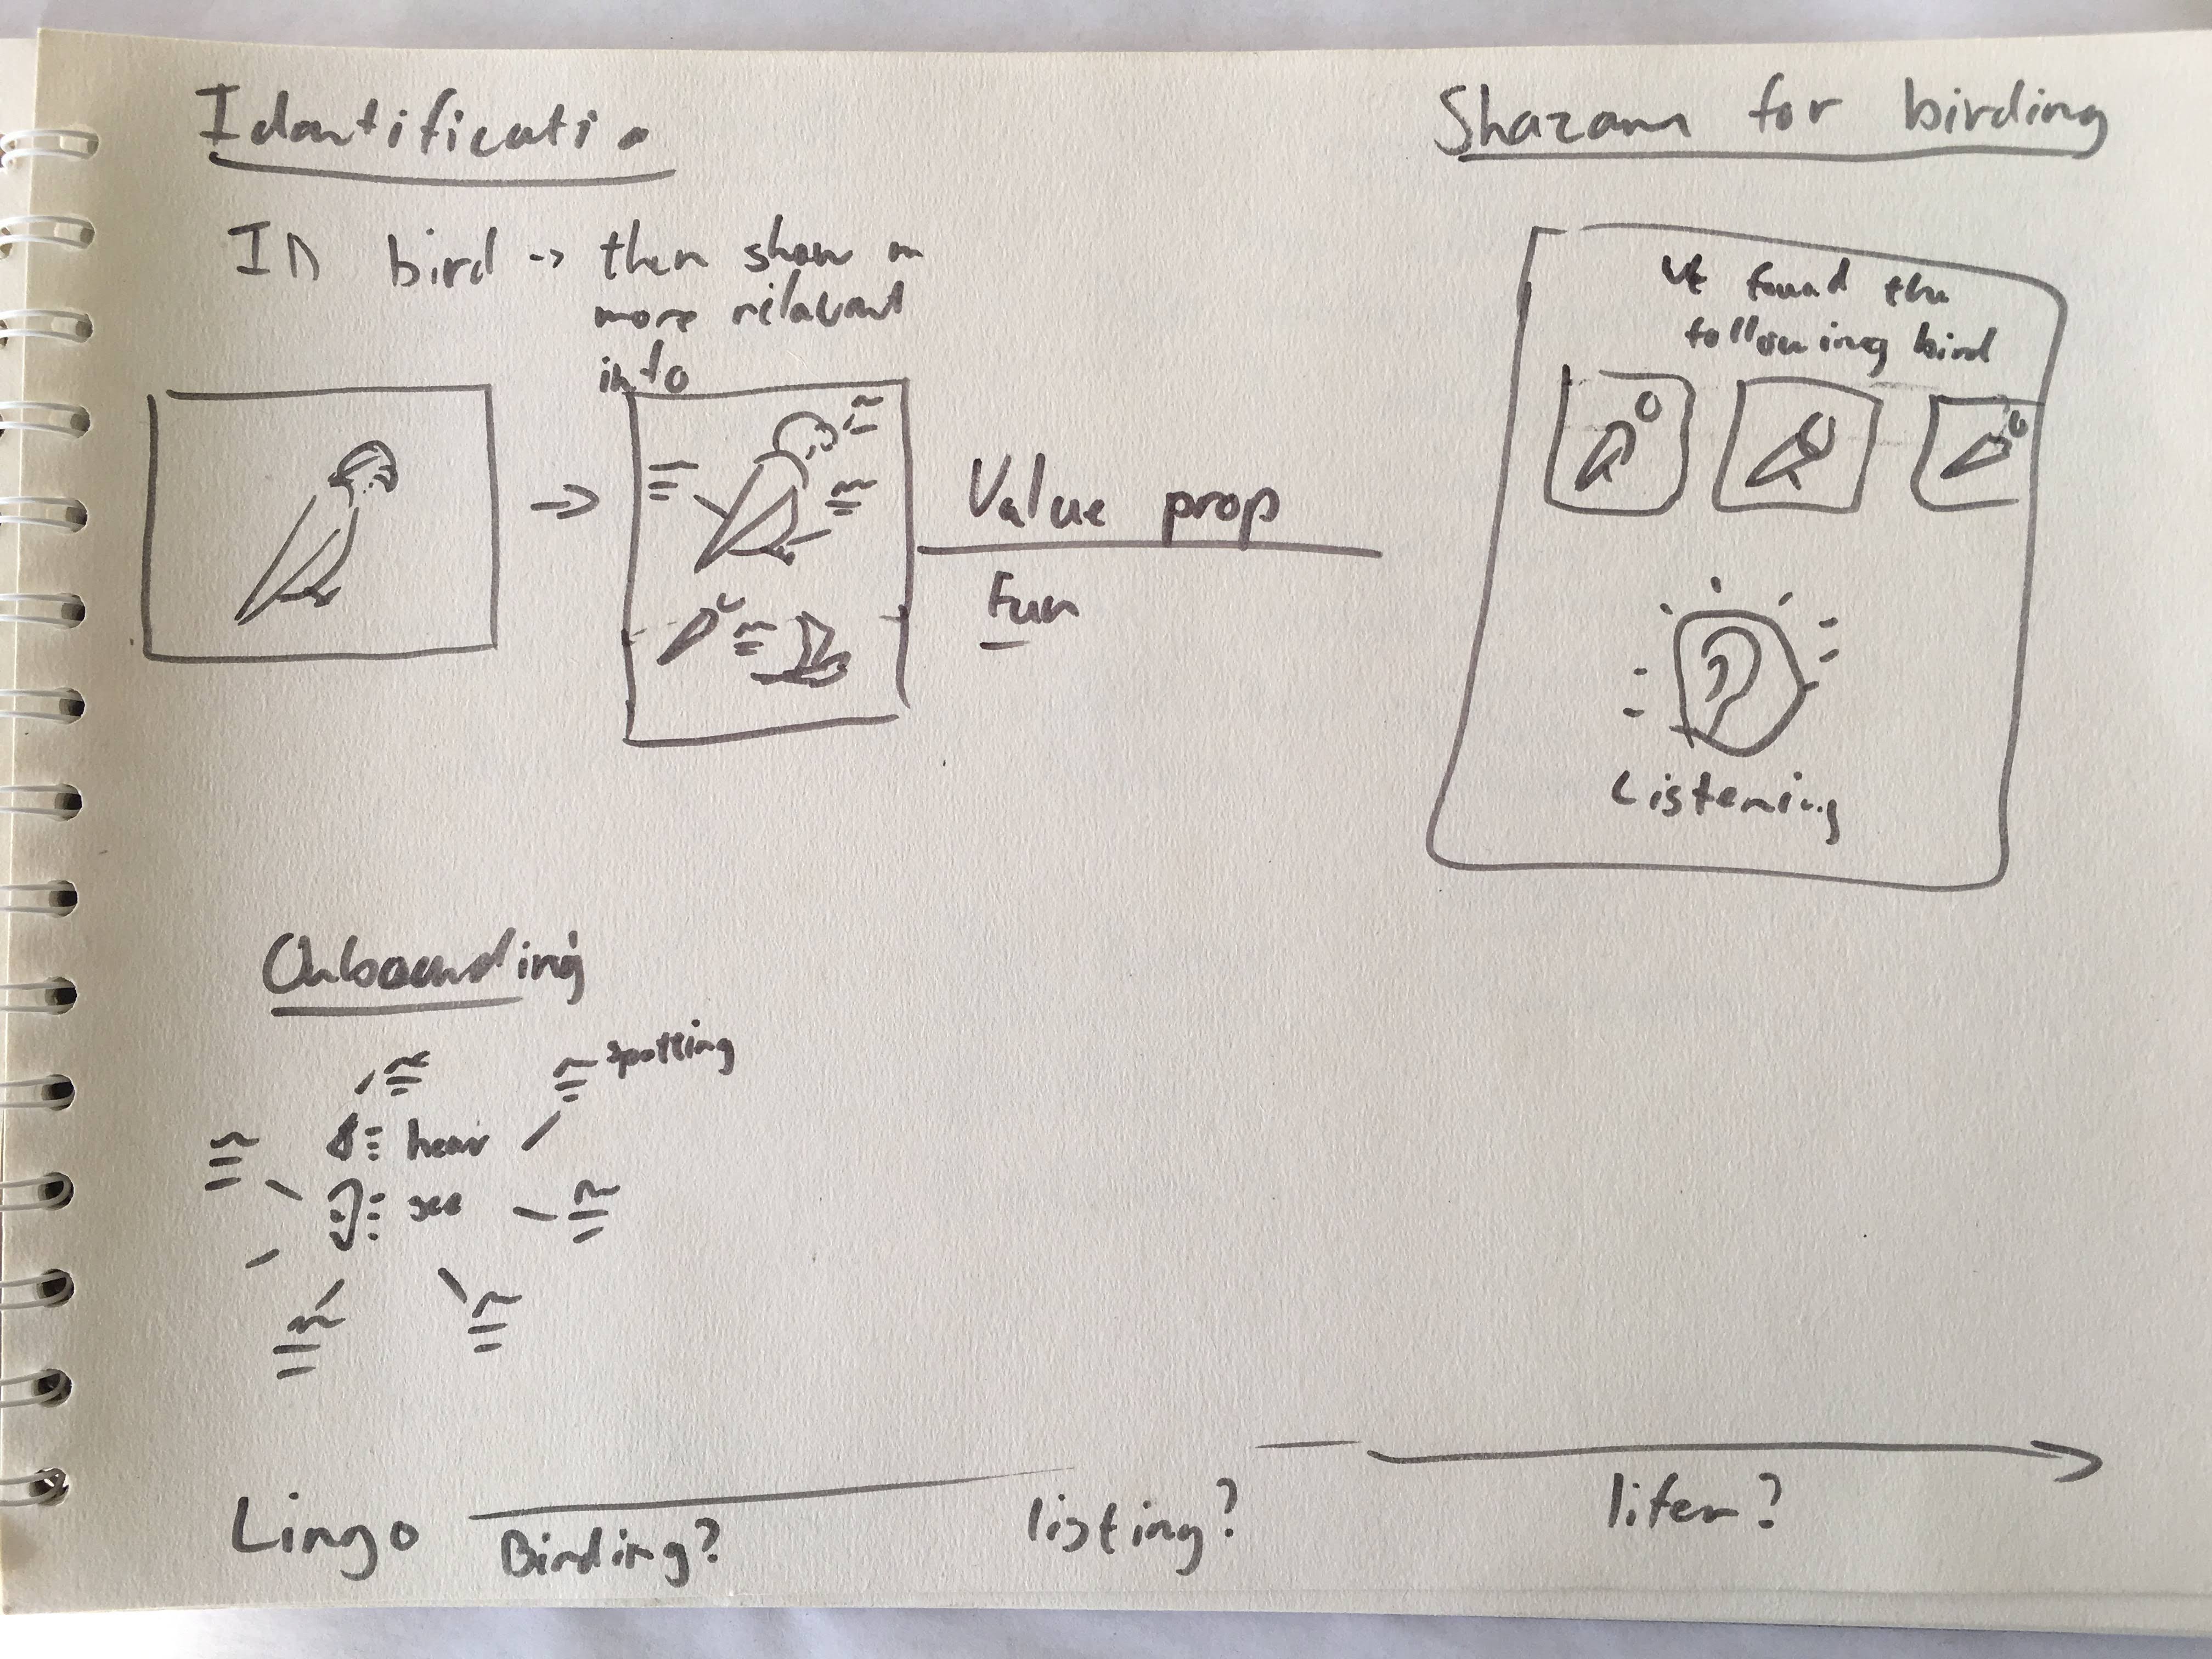 Identificatio
Shazam for birding
ID bird -> then show m
more relevant
info
We found the
following bird
Value prop
Fun
Listening
Onboarding
spotting
hear
see
Lingo
Birding?
listing?
lifer?